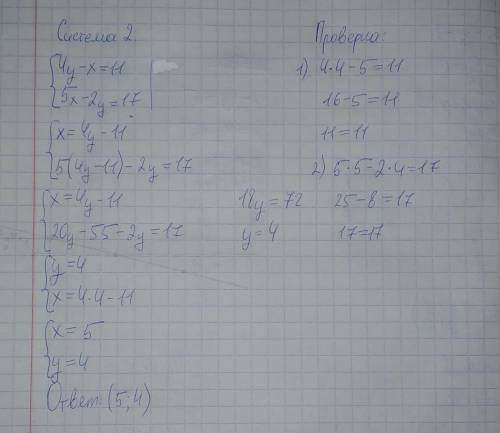 Система 2.
{4y-x=11
{5x-2y=17
{x=4y-11
{5(4y-11)-2y=17
{x=4y-11
{20y-55-2y=17
18y=72
y=4
{y=4
{x=4·4-11
{x=5
{y=4
Ответ: (5;4)
Проверка:
1) 4·4-5=11
16-5=11
11=11
2) 5·5-2·4=17
25-8=17
17=17